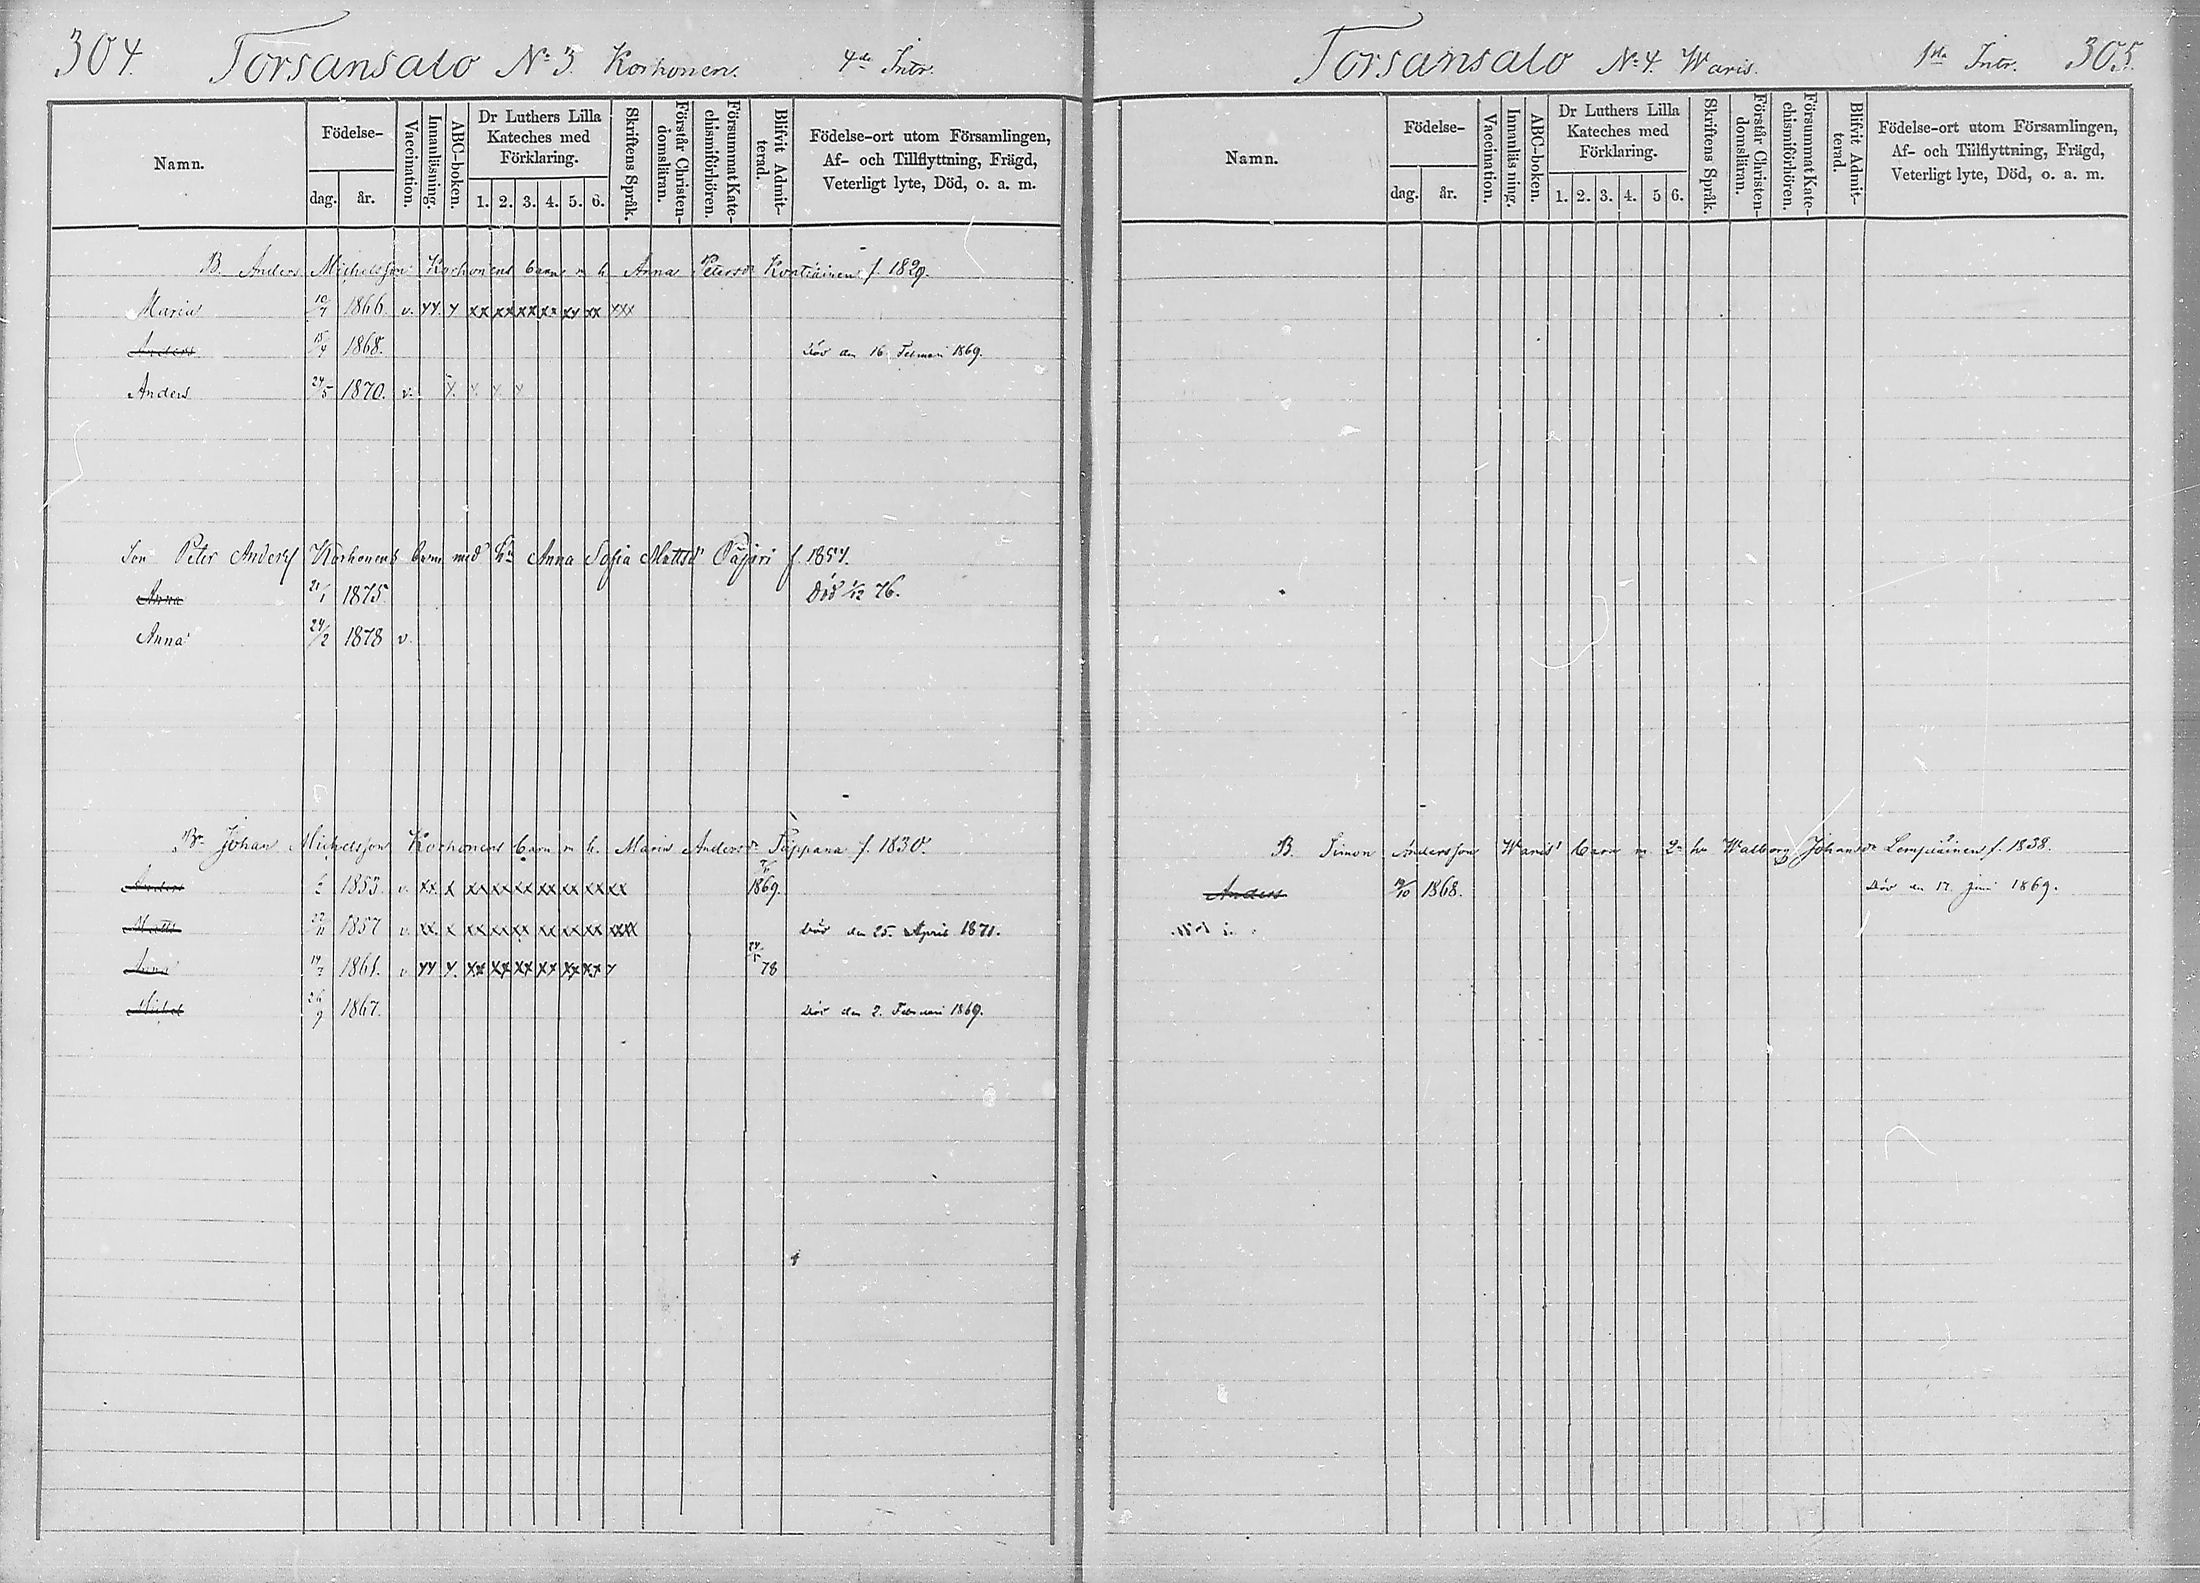 304. Torsansalo No 3. Korhonen. 4de Intr.
Namn.
Födelse-
dag. år.
Vaccination.
Innanläsning.
ABC-boken.
Dr Luthers Lilla
Kateches med
Förklaring.
1. 2. 3. 4. 5. 6.
Skriftens Språk.
Förstår Christen-
domsläran.
Försummat Kate-
chismiförhören.
Blifvit Admit-
terad.
Födelse-ort utom Församlingen,
Af- och Tillflyttning, Frägd,
Veterligt lyte, Död, o. a. m.
B. Anders Michelsson Korhonens barn m. h. Anna Petersdr Kontiainen f. 1829.
Maria 10/7 1866. v. xx x xx xx xx xx xx xx xxx
Anders 15/4 1868. Död den 16 Februari 1869.
Anders 24/5 1870. v. x. x. x. x
Son Peter Anderss Korhonens barn med Hu Anna Sofia Mattsd Pajari f. 1854.
Anna 21/1 1875 Död 1/12 76.
Anna 24/2 1878 v.
Br Johan Michelsson Korhonens barn m h. Maria Andersdr Pappana f. 1830.
Anders 1853. v. xx. x xx xx xx xx xx xx xx 1869.
Matts 22/11 1857 v. xx. x xx xx xx xx xx xx xxx Död den 25. April 1871.
Anna 1861. v xx x. xx xx xx xx xx xx x 24/5 78
Michel 26/9 1867. Död den 2. Februari 1869.
Torsansalo No 4. Waris. 1sta Intr. 305.
Namn.
Födelse-
dag. år.
Vaccination.
Innanläsning.
ABC-boken.
Dr Luthers Lilla
Kateches med
Förklaring.
1. 2. 3. 4. 5 6.
Skriftens Språk.
Förstår Christen-
domsläran.
Försummat Kate-
chismiförhören.
Blifvit Admit-
terad.
Födelse-ort utom Församlingen,
Af- och Tillflyttning, Frägd,
Veterligt lyte, Död, o. a. m.
B. Simon Andersson Waris' barn m. 2a hu Walborg Johansdr Lempiäinen f. 1838.
Anders 1868. Död den 17. Juni 1869.